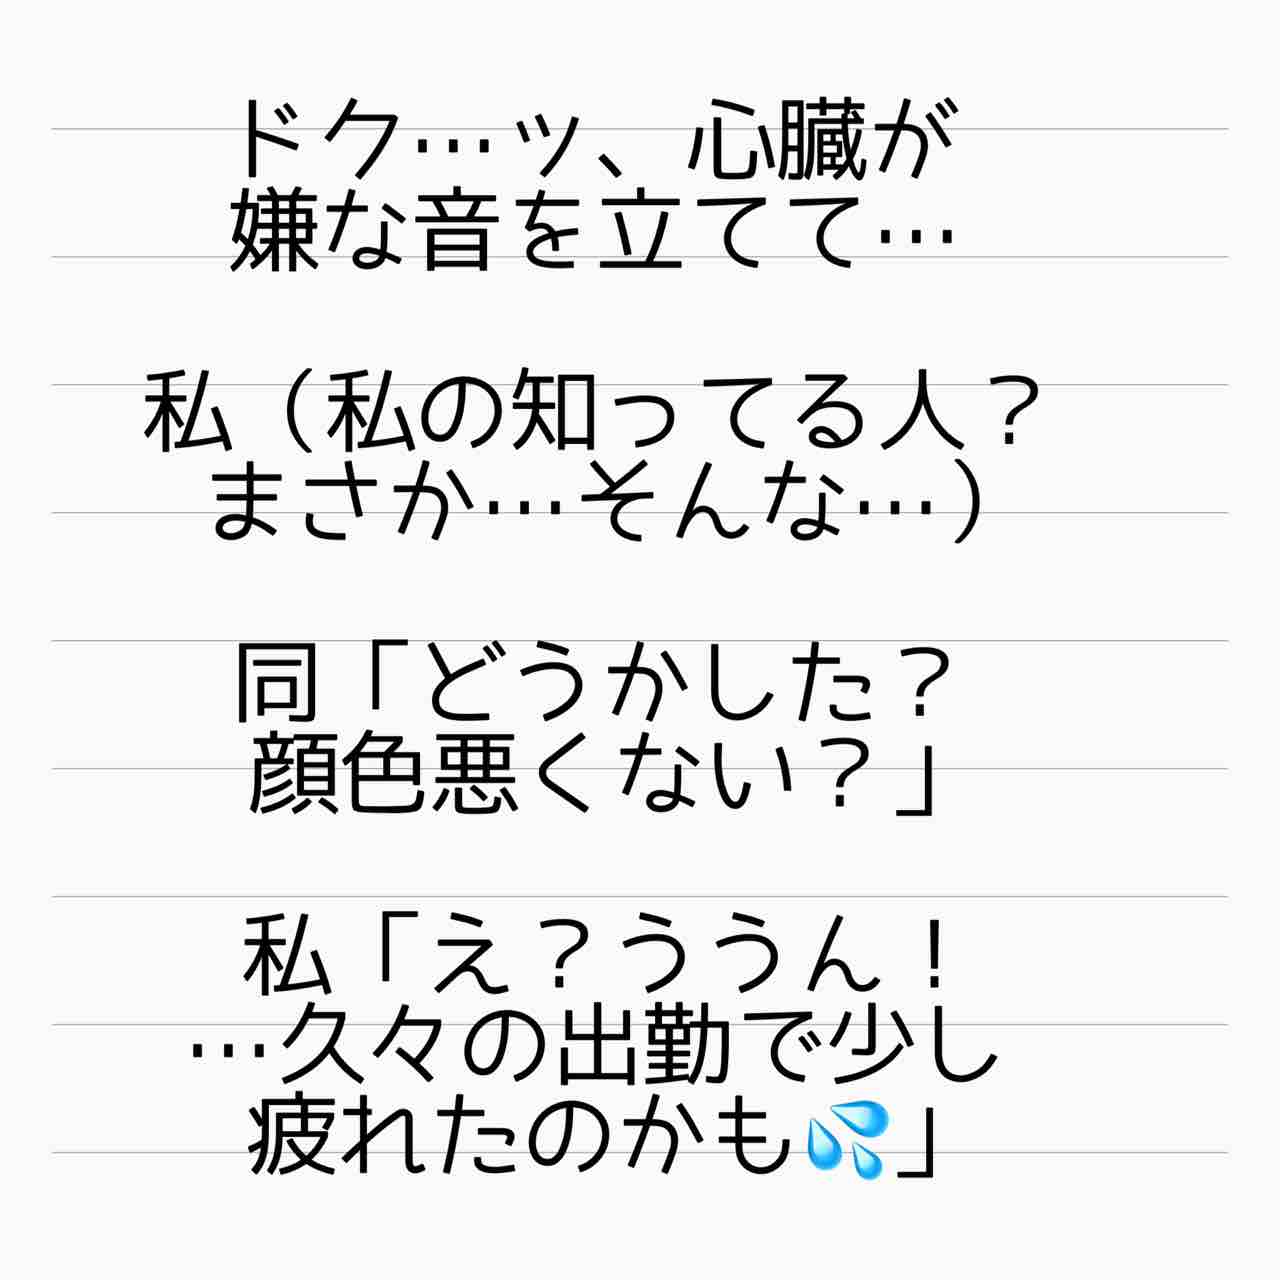 ドク…ッ、心臓が
嫌な音を立てて…
私（私の知ってる人？
まさか…そんな…）
同「どうかした？
顔色悪くない？」
私「え？ううん！
…久々の出勤で少し
疲れたのかも💦」